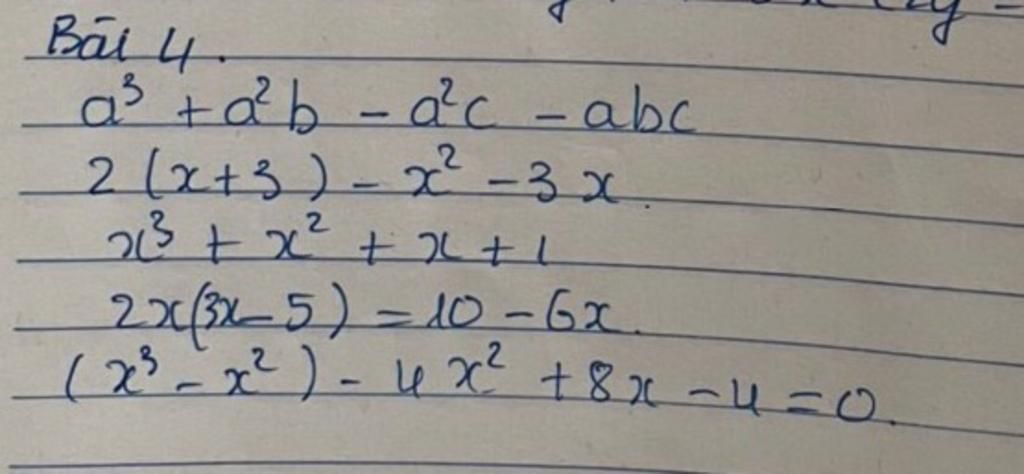 Bài 4.
a³ + a²b - a²c - abc
2 (x+3) - x² - 3x.
x³ + x² + x + 1
2x(3x-5) = 10 - 6x.
(x³ - x²) - 4x² + 8x - 4 = 0.